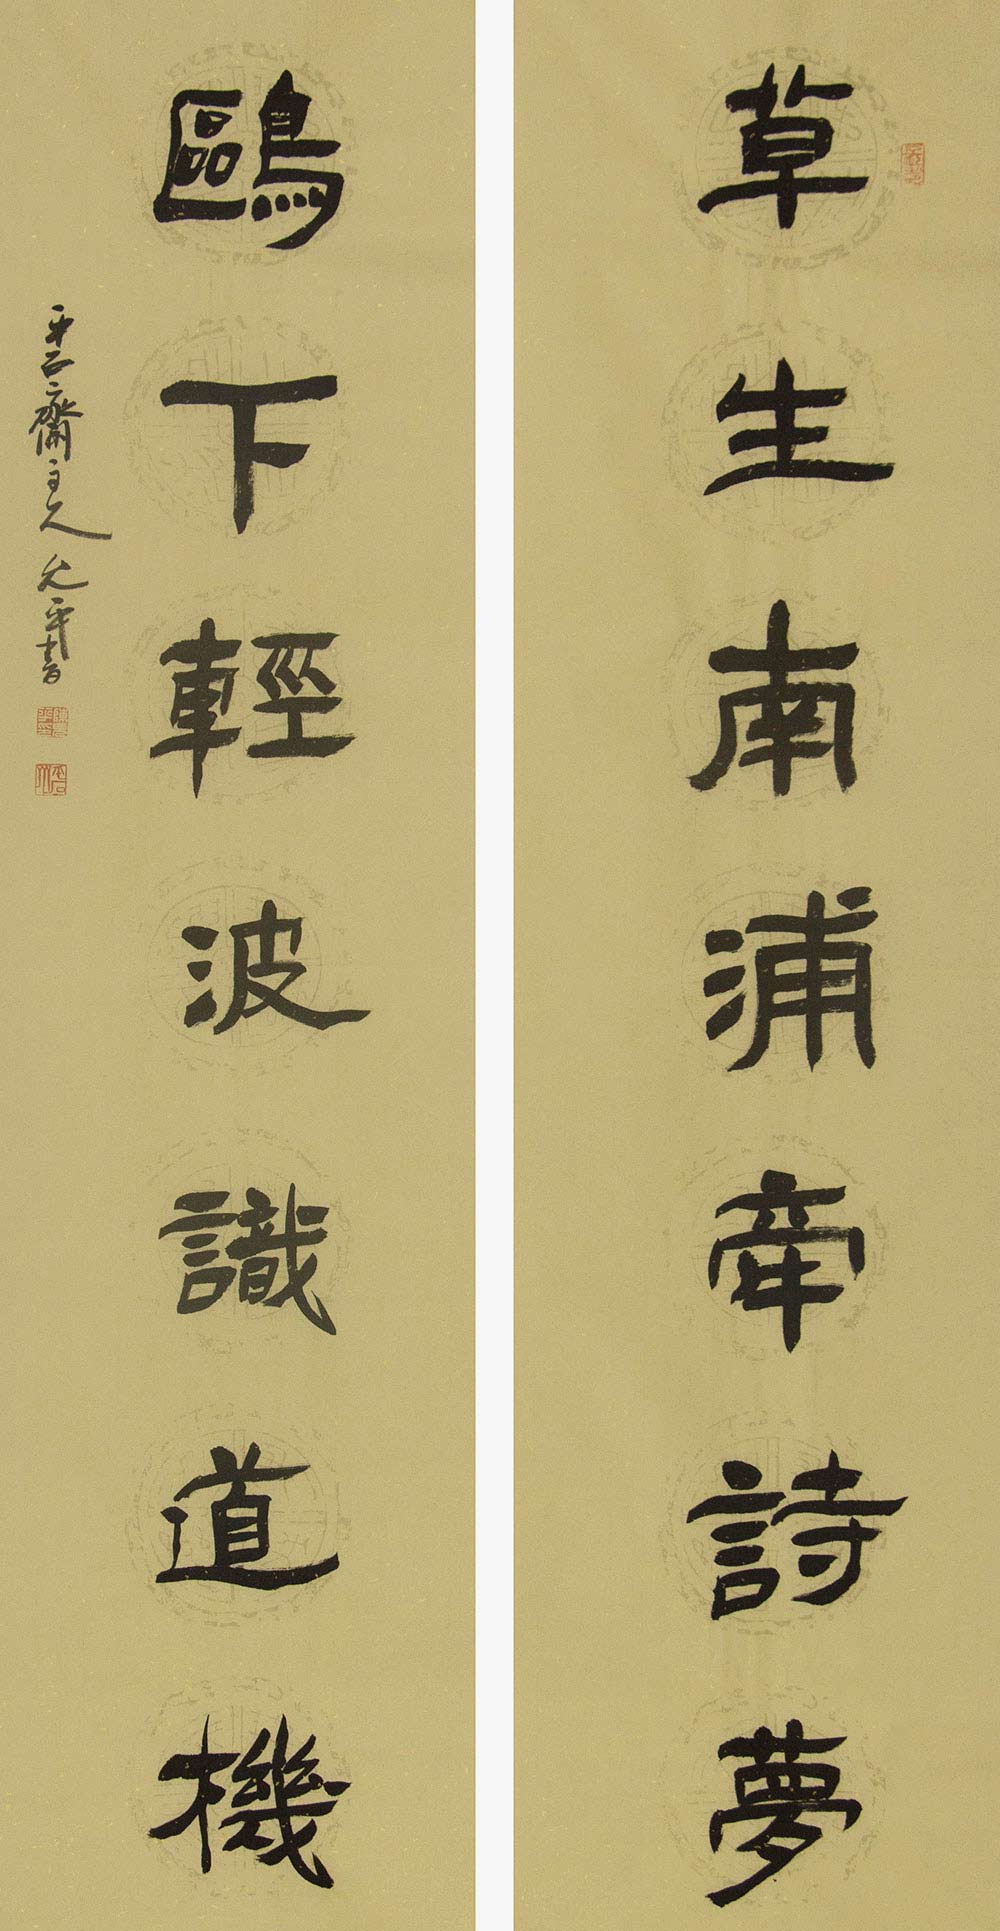 草生南浦牽詩夢
鷗下輕波識道機
齋主人允平書